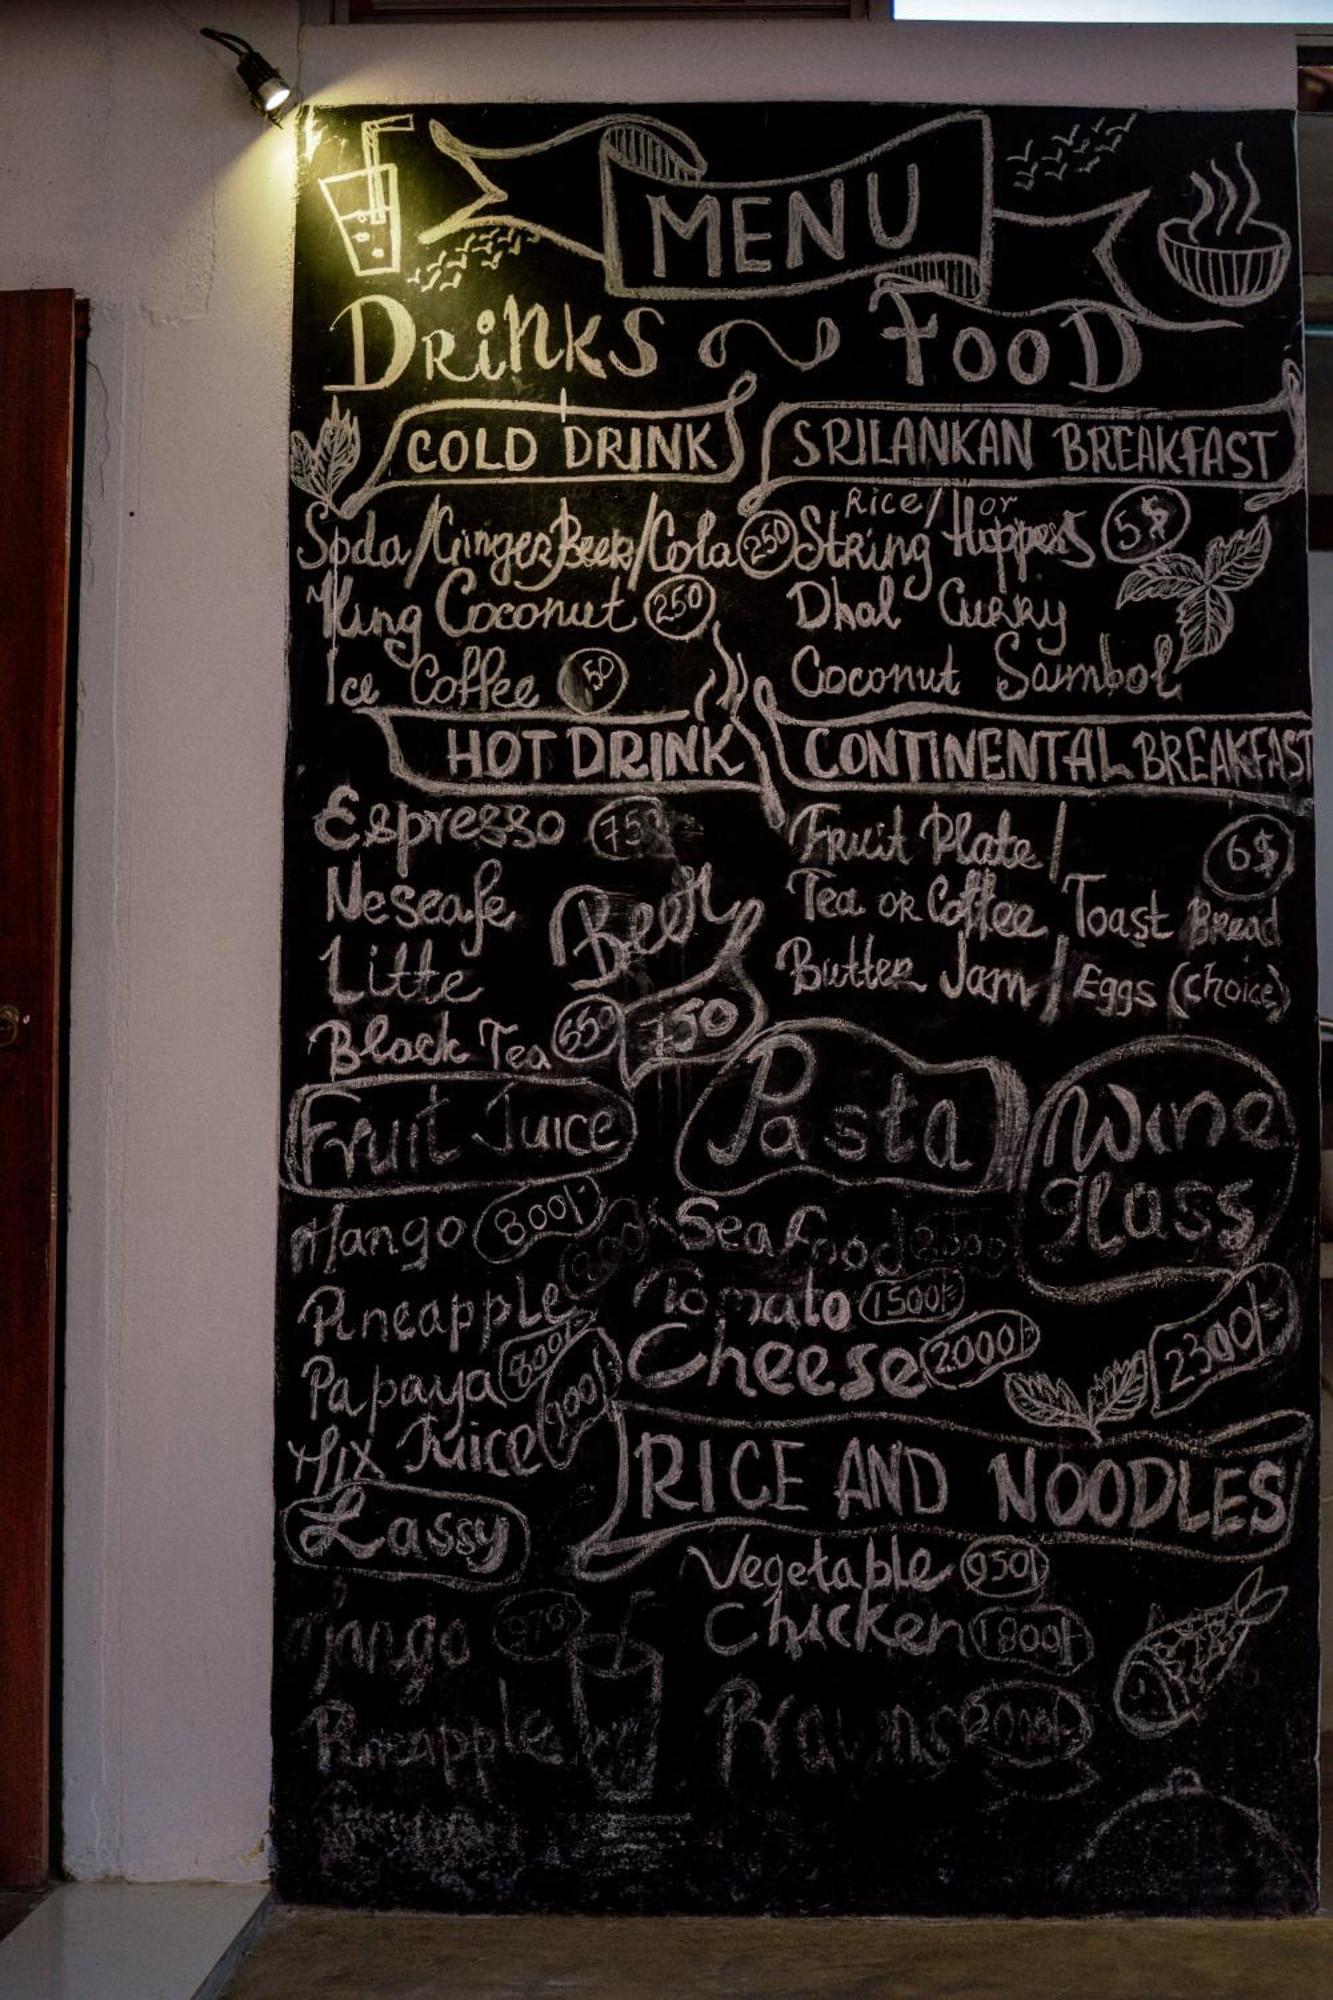 MENU
DRiNKS FOOD
COLD DRINK
Soda/GingerBeer/Cola 250
King Coconut 250
Ice Coffee
HOT DRINK
Espresso 750
Nescafe
Litte
Black Tea 650
Beer
750
Fruit Juice
Mango 800/-
Pineapple
Papaya 800/-
Mix Juice 900/-
Lassy
Mango
Pineapple
SRILANKAN BREAKFAST
Rice/ or
String Hoppers 5$
Dhal Curry
Coconut Sambol
CONTINENTAL BREAKFAST
Fruit Plate/ 6$
Tea OR Coffee Toast Bread
Butter Jam/Eggs (choice)
Pasta
Seafood
Tomato 1500/-
Cheese 2000/-
Wine
Glass
2300/-
RICE AND NOODLES
Vegetable 950/-
Chicken 1800/-
Prawns